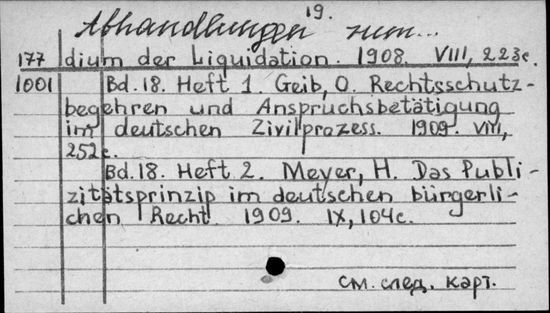 19.
Abhandlungen zum...
177 dium der Liquidation. 1908. VIII, 223c.
1001 Bd. 18. Heft 1. Geib, O. Rechtsschutz-
begehren und Anspruchsbetätigung
im deutschen Zivilprozess. 1909. VIII,
252c.
Bd. 18. Heft 2. Meyer, H. Das Publi-
zitätsprinzip im deutschen bürgerli-
chen Recht. 1909. IX, 104c.
см. след. карт.